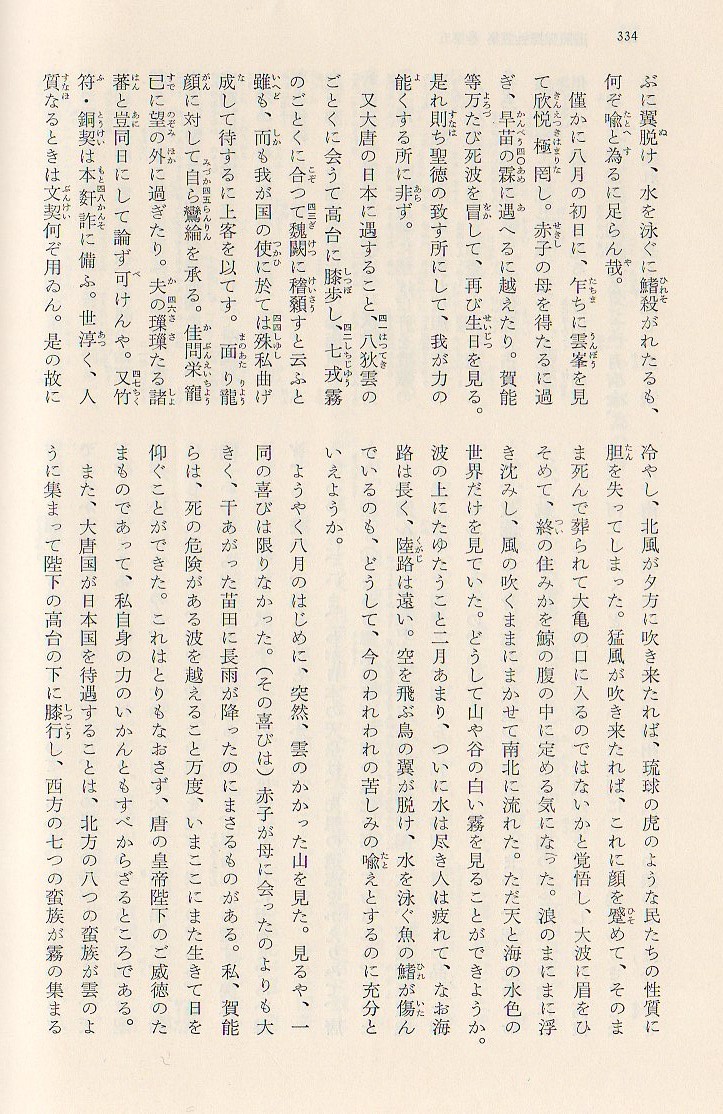 334
ぶに翼脱け、水を泳ぐに鰭殺がれたるも、
何ぞ喩と為るに足らん哉。
僅かに八月の初日に、乍ちに雲峯を見
て欣悦極罔し。赤子の母を得たるに過
ぎ、旱苗の霖に遇へるに越えたり。賀能
等万たび死波を冒して、再び生日を見る。
是れ則ち聖徳の致す所にして、我が力の
能くする所に非ず。
又大唐の日本に遇すること、八狄雲の
ごとくに会うて高台に膝歩し、七戎霧
のごとくに合つて魏闕に稽顙すと云ふと
雖も、而も我が国の使に於ては殊私曲げ
成して待するに上客を以てす。面り龍
顔に対して自ら鸞綸を承る。佳問栄寵
已に望の外に過ぎたり。夫の璅璅たる諸
蕃と豈同日にして論ず可けんや。又竹
符・銅契は本姧詐に備ふ。世淳く、人
質なるときは文契何ぞ用ゐん。是の故に
冷やし、北風が夕方に吹き来たれば、琉球の虎のような民たちの性質に
胆を失ってしまった。猛風が吹き来たれば、これに顔を蹙めて、そのま
ま死んで葬られて大亀の口に入るのではないかと覚悟し、大波に眉をひ
そめて、終の住みかを鯨の腹の中に定める気になった。浪のまにまに浮
き沈みし、風の吹くままにまかせて南北に流れた。ただ天と海の水色の
世界だけを見ていた。どうして山や谷の白い霧を見ることができようか。
波の上にたゆたうこと二月あまり、ついに水は尽き人は疲れて、なお海
路は長く、陸路は遠い。空を飛ぶ鳥の翼が脱け、水を泳ぐ魚の鰭が傷ん
でいるのも、どうして、今のわれわれの苦しみの喩えとするのに充分と
いえようか。
ようやく八月のはじめに、突然、雲のかかった山を見た。見るや、一
同の喜びは限りなかった。（その喜びは）赤子が母に会ったのよりも大
きく、干あがった苗田に長雨が降ったのにまさるものがある。私、賀能
らは、死の危険がある波を越えること万度、いまここにまた生きて日を
仰ぐことができた。これはとりもなおさず、唐の皇帝陛下のご威徳のた
まものであって、私自身の力のいかんともすべからざるところである。
また、大唐国が日本国を待遇することは、北方の八つの蛮族が雲のよ
うに集まって陛下の高台の下に膝行し、西方の七つの蛮族が霧の集まる